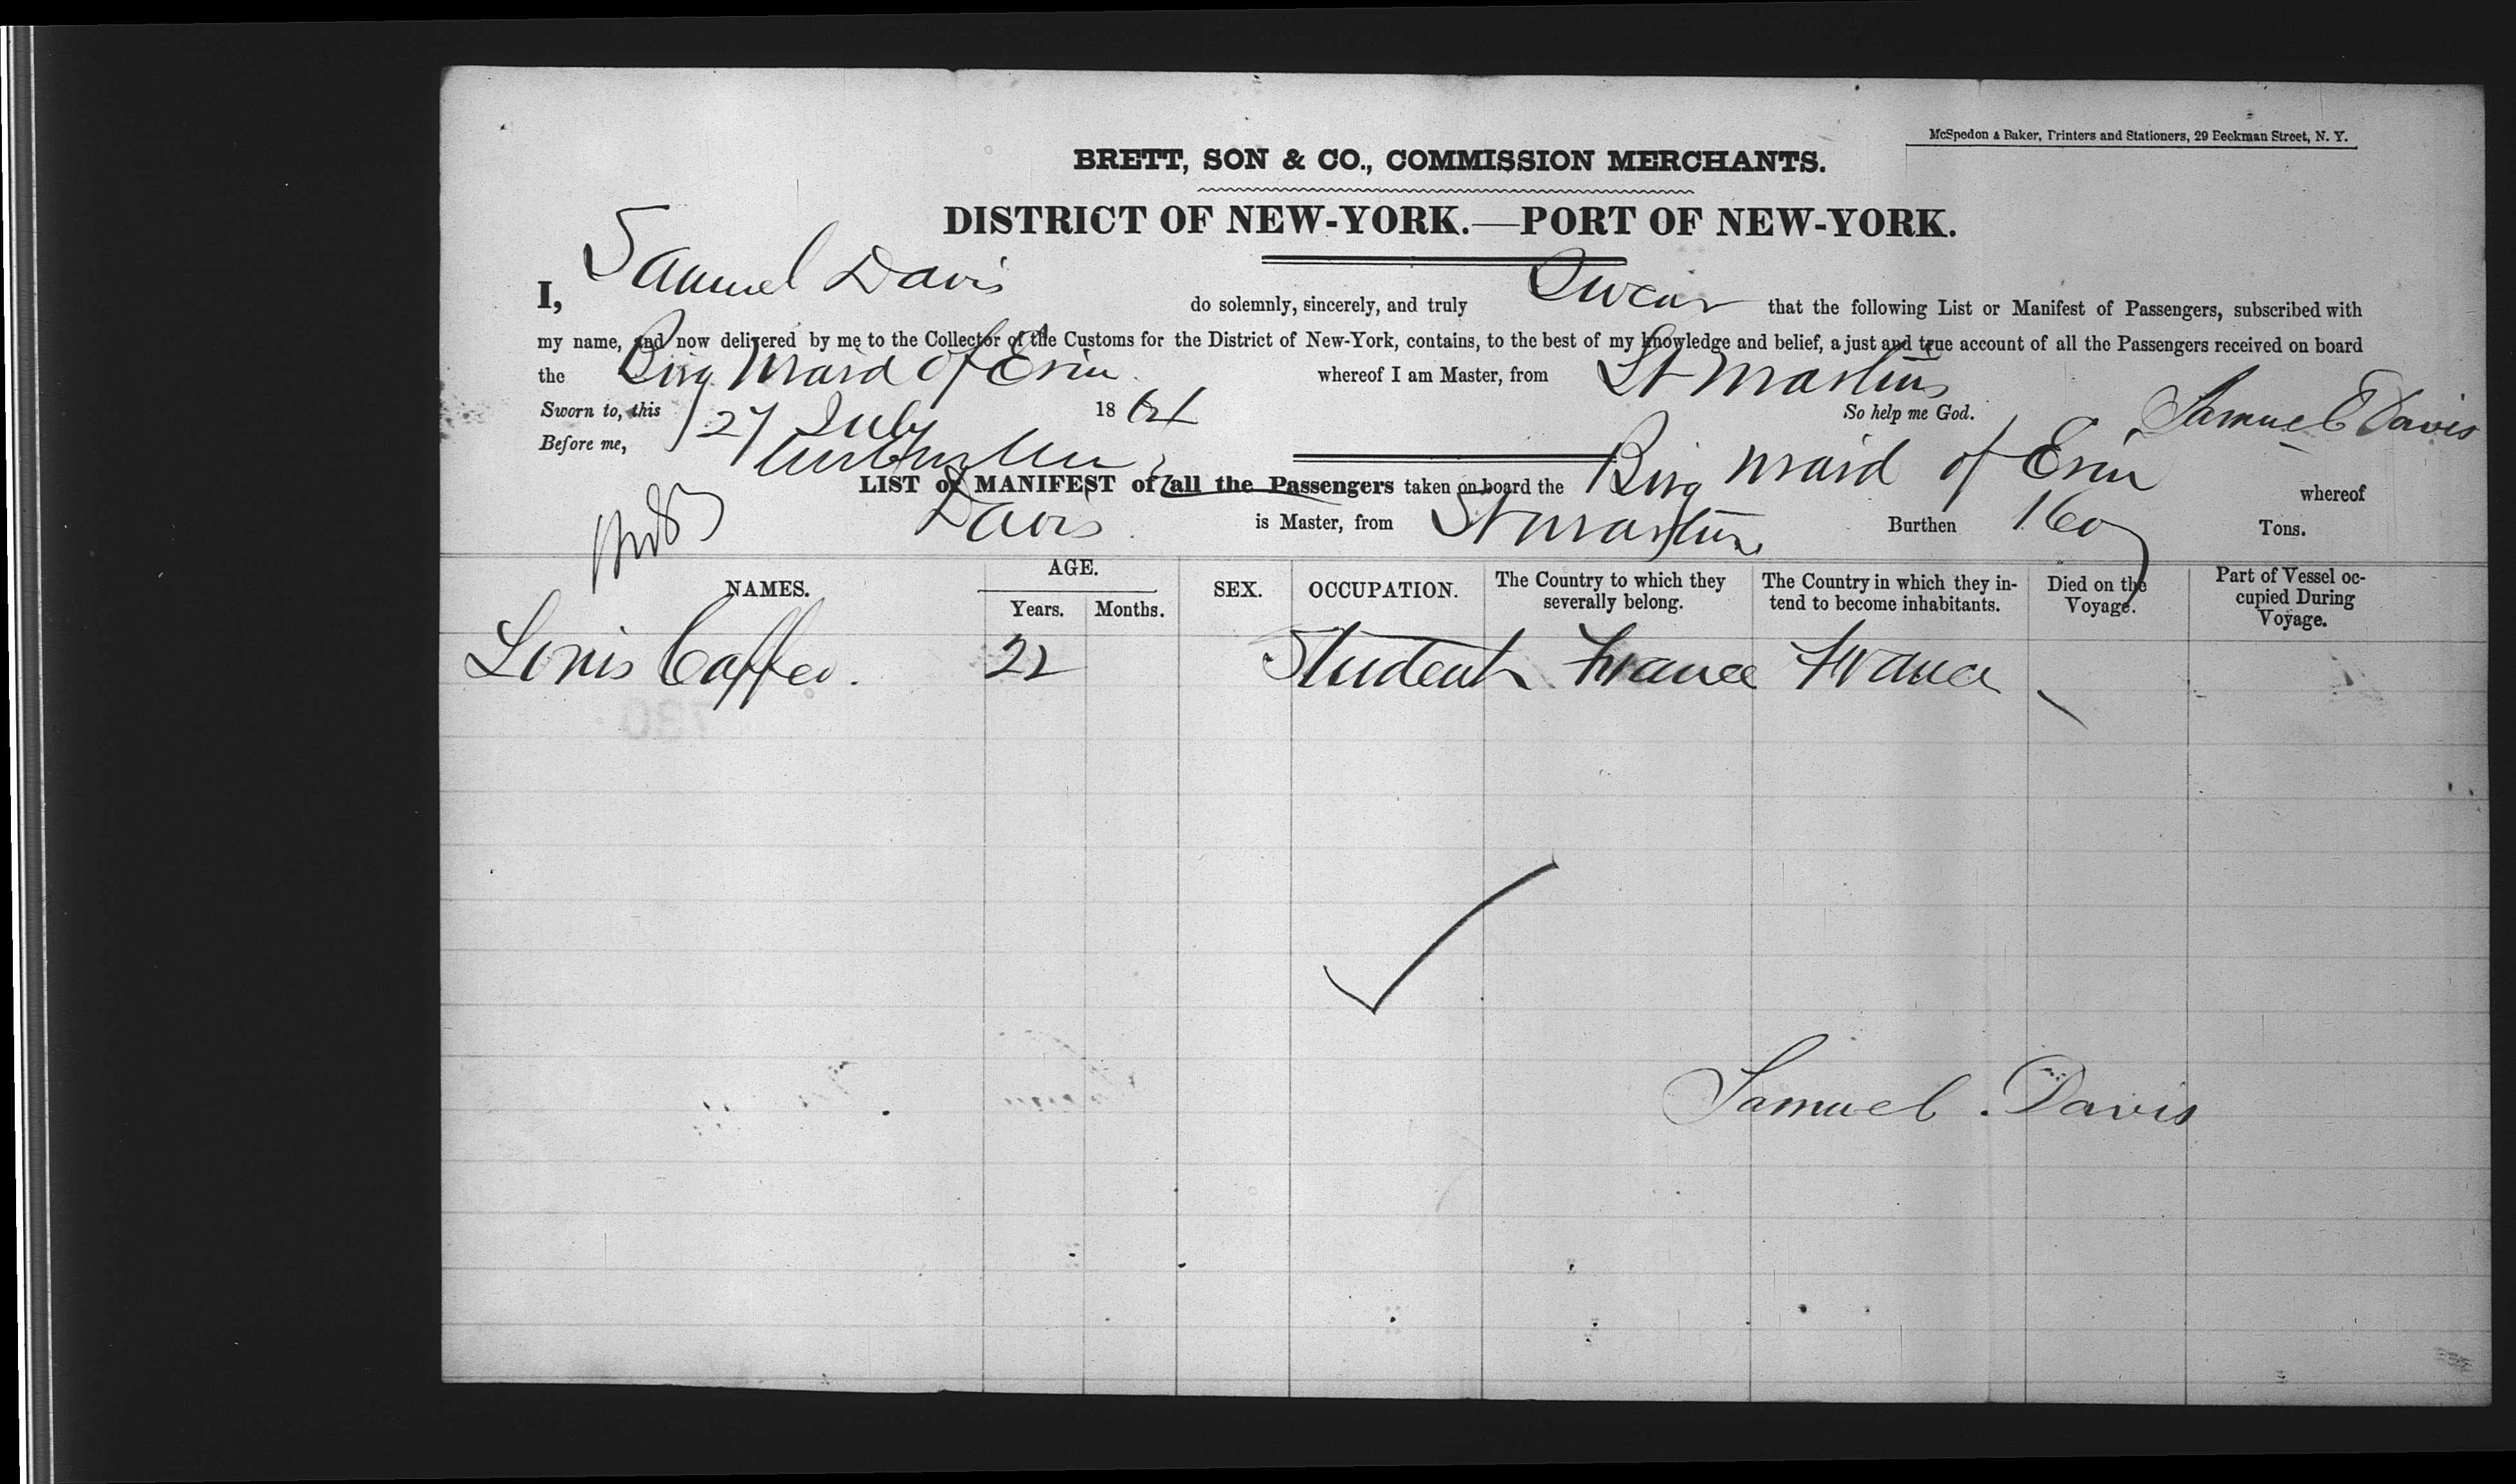 McSpedon & Baker, Printers and Stationers, 29 Beekman Street, N. Y.
BRETT, SON & CO., COMMISSION MERCHANTS.
DISTRICT OF NEW-YORK.—PORT OF NEW-YORK.
I, Samuel Davis do solemnly, sincerely, and truly Swear that the following List or Manifest of Passengers, subscribed with
my name, and now delivered by me to the Collector of the Customs for the District of New-York, contains, to the best of my knowledge and belief, a just and true account of all the Passengers received on board
the Brig Maid of Erin whereof I am Master, from St Martins
Sworn to, this 27 July 18 So help me God. Samuel Davis
Before me,
LIST or MANIFEST of all the Passengers taken on board the Brig Maid of Erin whereof
Davis is Master, from St Martins Burthen 160 Tons.
NAMES. AGE. Years. Months. SEX. OCCUPATION. The Country to which they severally belong. The Country in which they intend to become inhabitants. Died on the Voyage. Part of Vessel occupied During Voyage.
Louis 22 Student France France
Samuel . Davis